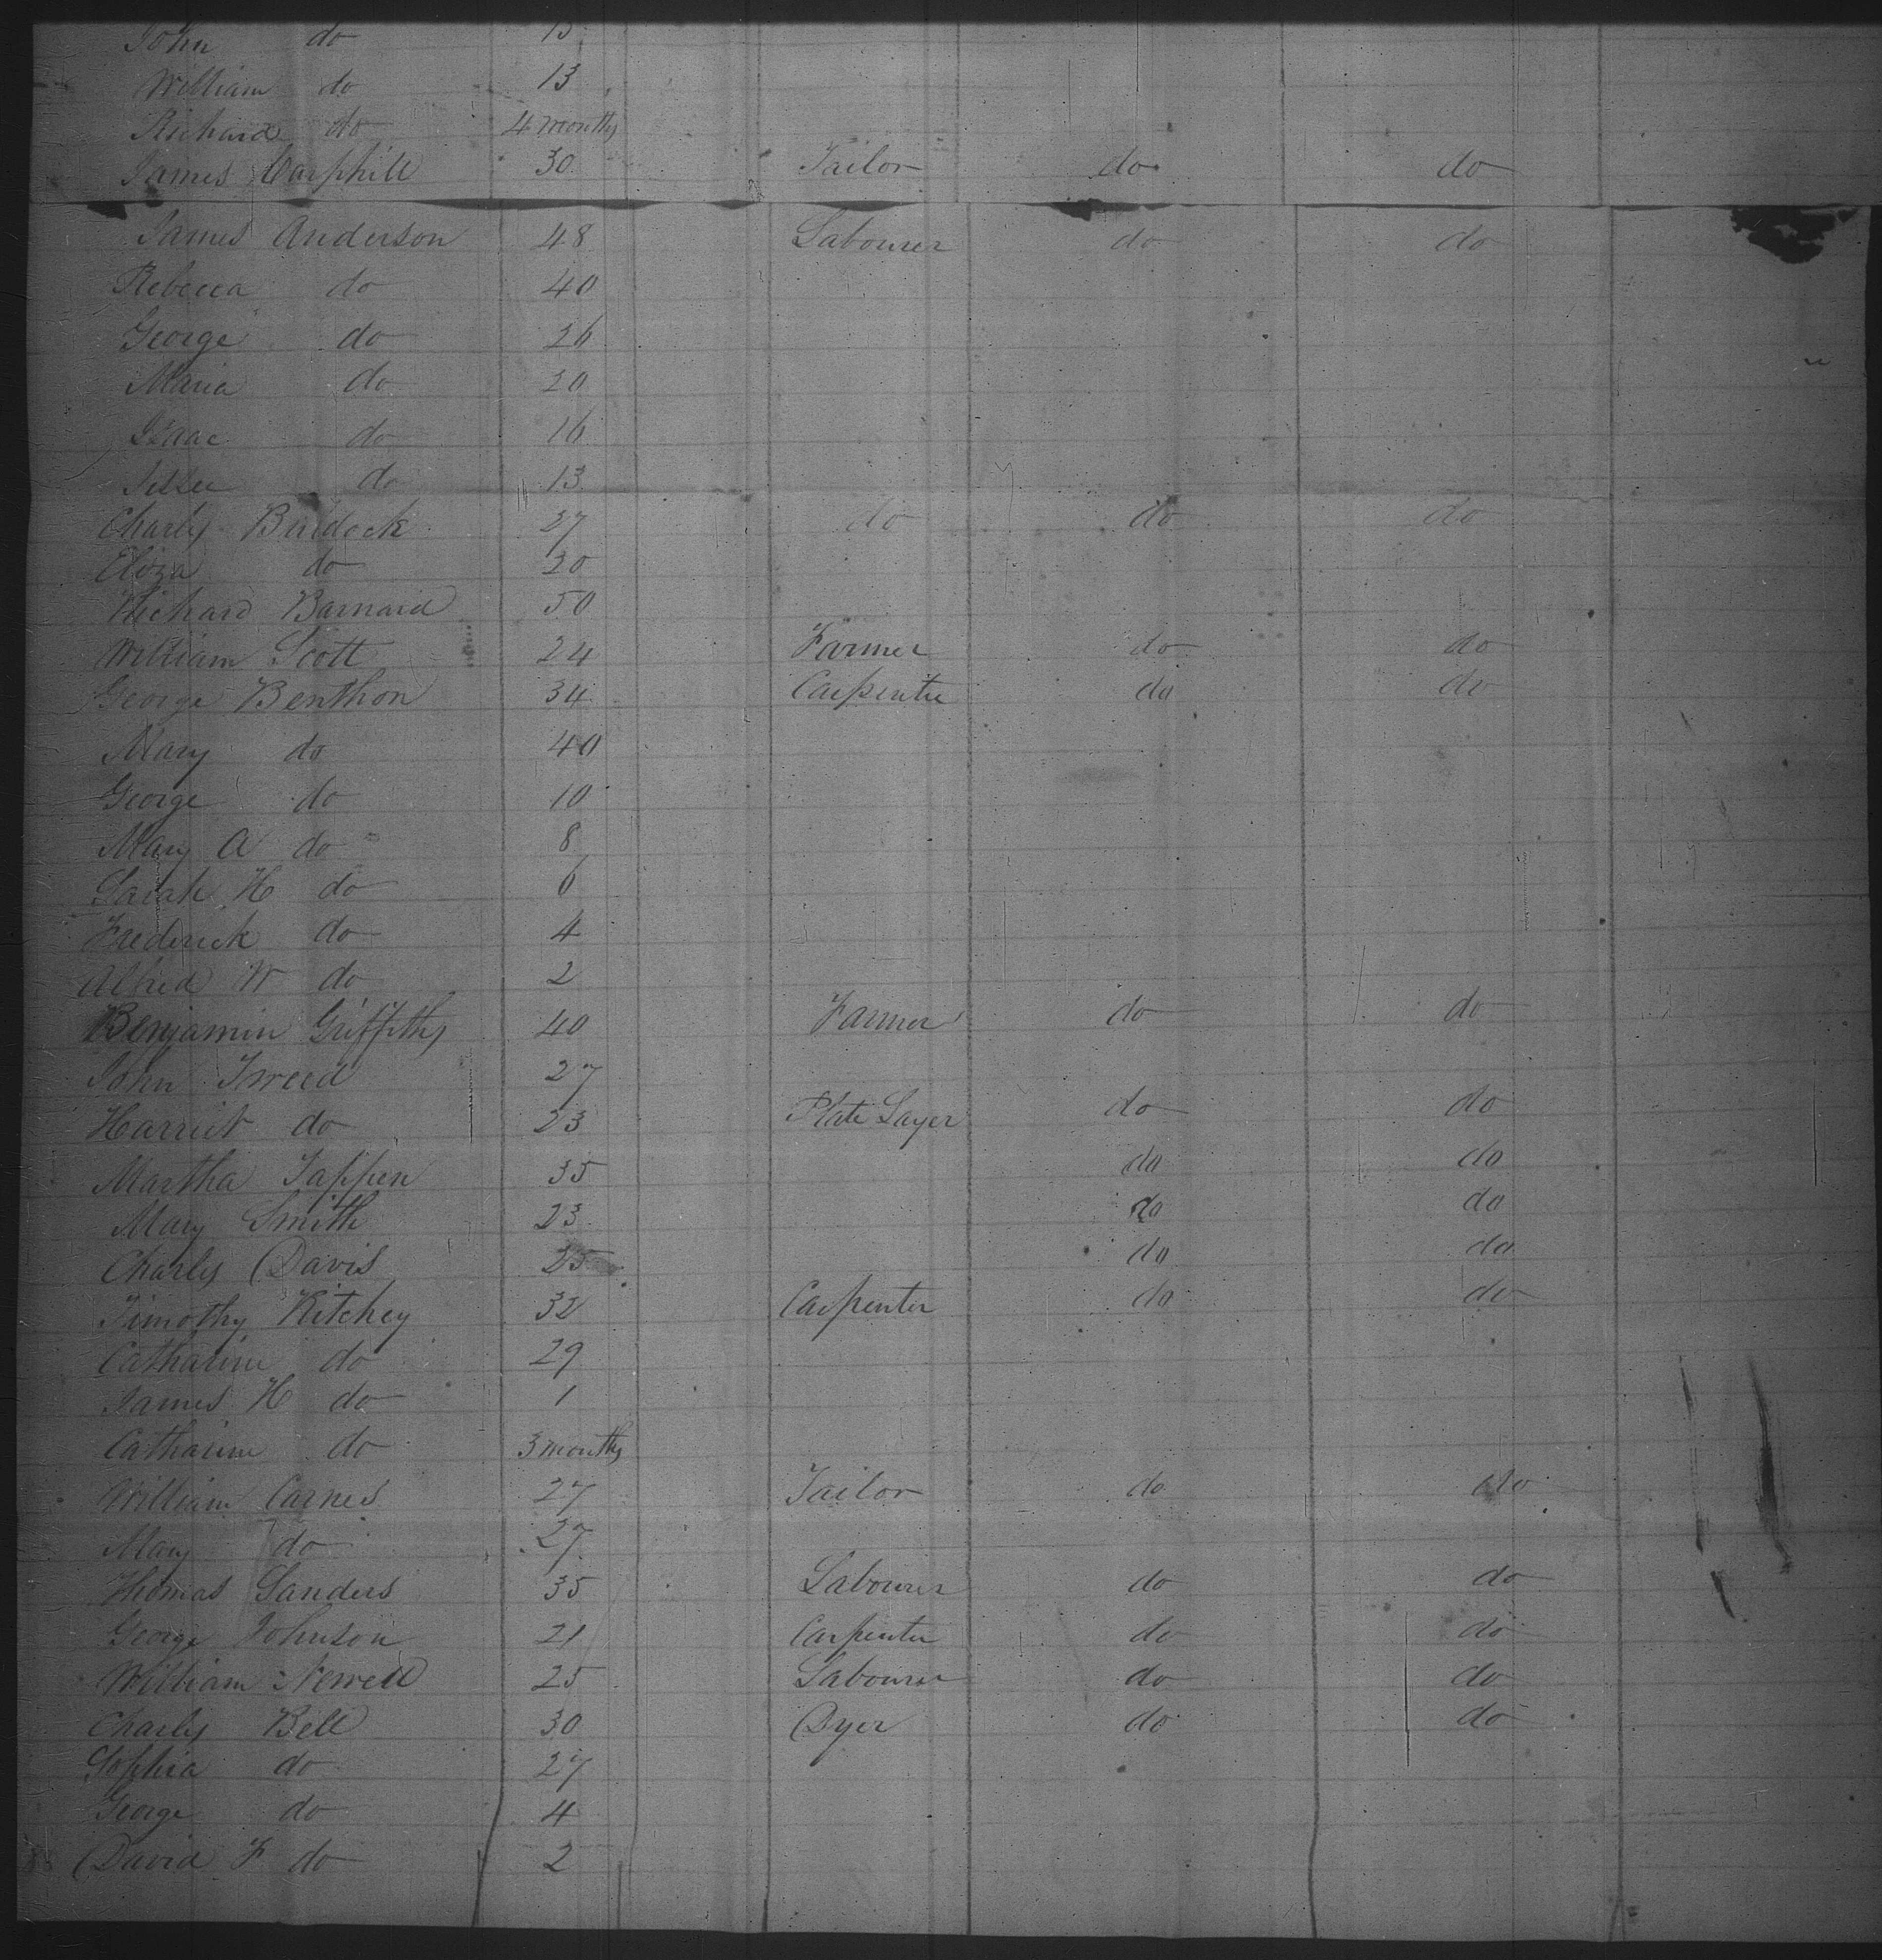 John do 15
William do 13
Richard do 4 months
James Carphill 30 Tailor do do
James Anderson 48 Labourer do do
Rebecca do 40
George do 26
Maria do 20
Isaac do 16
do 13
Charles Burdock 27 do do do
Eliza do 20
Richard Barnard 50
William Scott 24 Farmer do do
George Benthon 34 Carpenter do do
Mary do 40
George do 10
Mary A do 8
Sarah H do 6
Frederick do 4
Alfred W do 2
Benjamin Griffiths 40 Farmer do do
John Tweed 27
Harriet do 23 Plate Layer do do
Martha Tappen 35 do do
Mary Smith 23 do do
Charles Davis 25 do do
Timothy Ritchey 32 Carpenter do do
Catharine do 29
James H do 1
Catharine do 3 months
William Carnes 27 Tailor do do
Mary do 27
Thomas Sanders 35 Labourer do do
George Johnson 21 Carpenter do do
William Newell 25 Labourer do do
Charles Bell 30 Dyer do do
Sophia do 27
George do 4
David F do 2